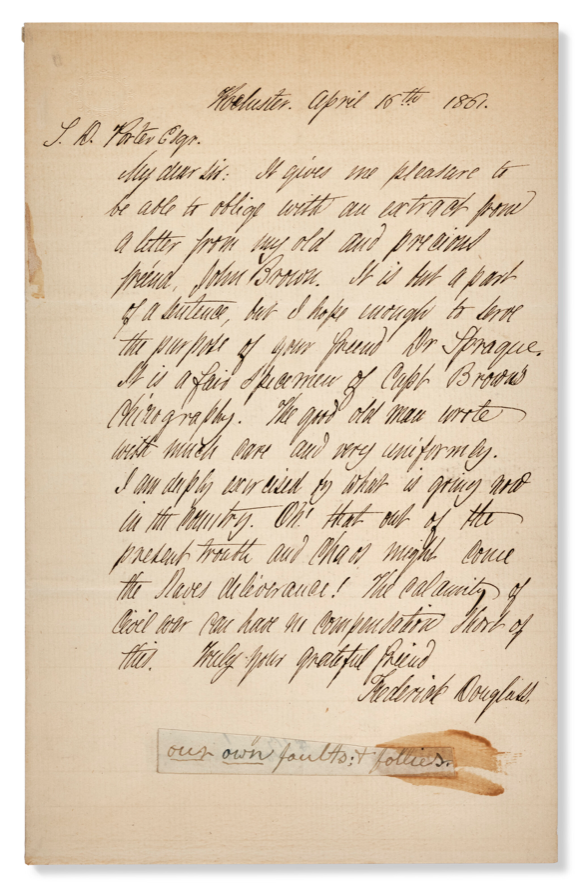 Rochester. April 16th 1861.
S. D. Porter Esqr.
My dear Sir: It gives me pleasure to
be able to oblige with an extract from
a letter from my old and precious
friend, John Brown. It is but a part
of a sentence, but I hope enough to serve
the purpose of your friend Dr Sprague.
It is a fair Specimen of Capt Brown's
Chirography. The good old man wrote
with much care and very uniformly.
I am deeply exercised by what is going now
in the Country. Oh! that out of the
present trouble and Chaos might come
the Slaves deliverance! The calamity of
Civil war can have no compensation Short of
this. Truly your grateful friend
Frederick Douglass.
our own faults; & follies.